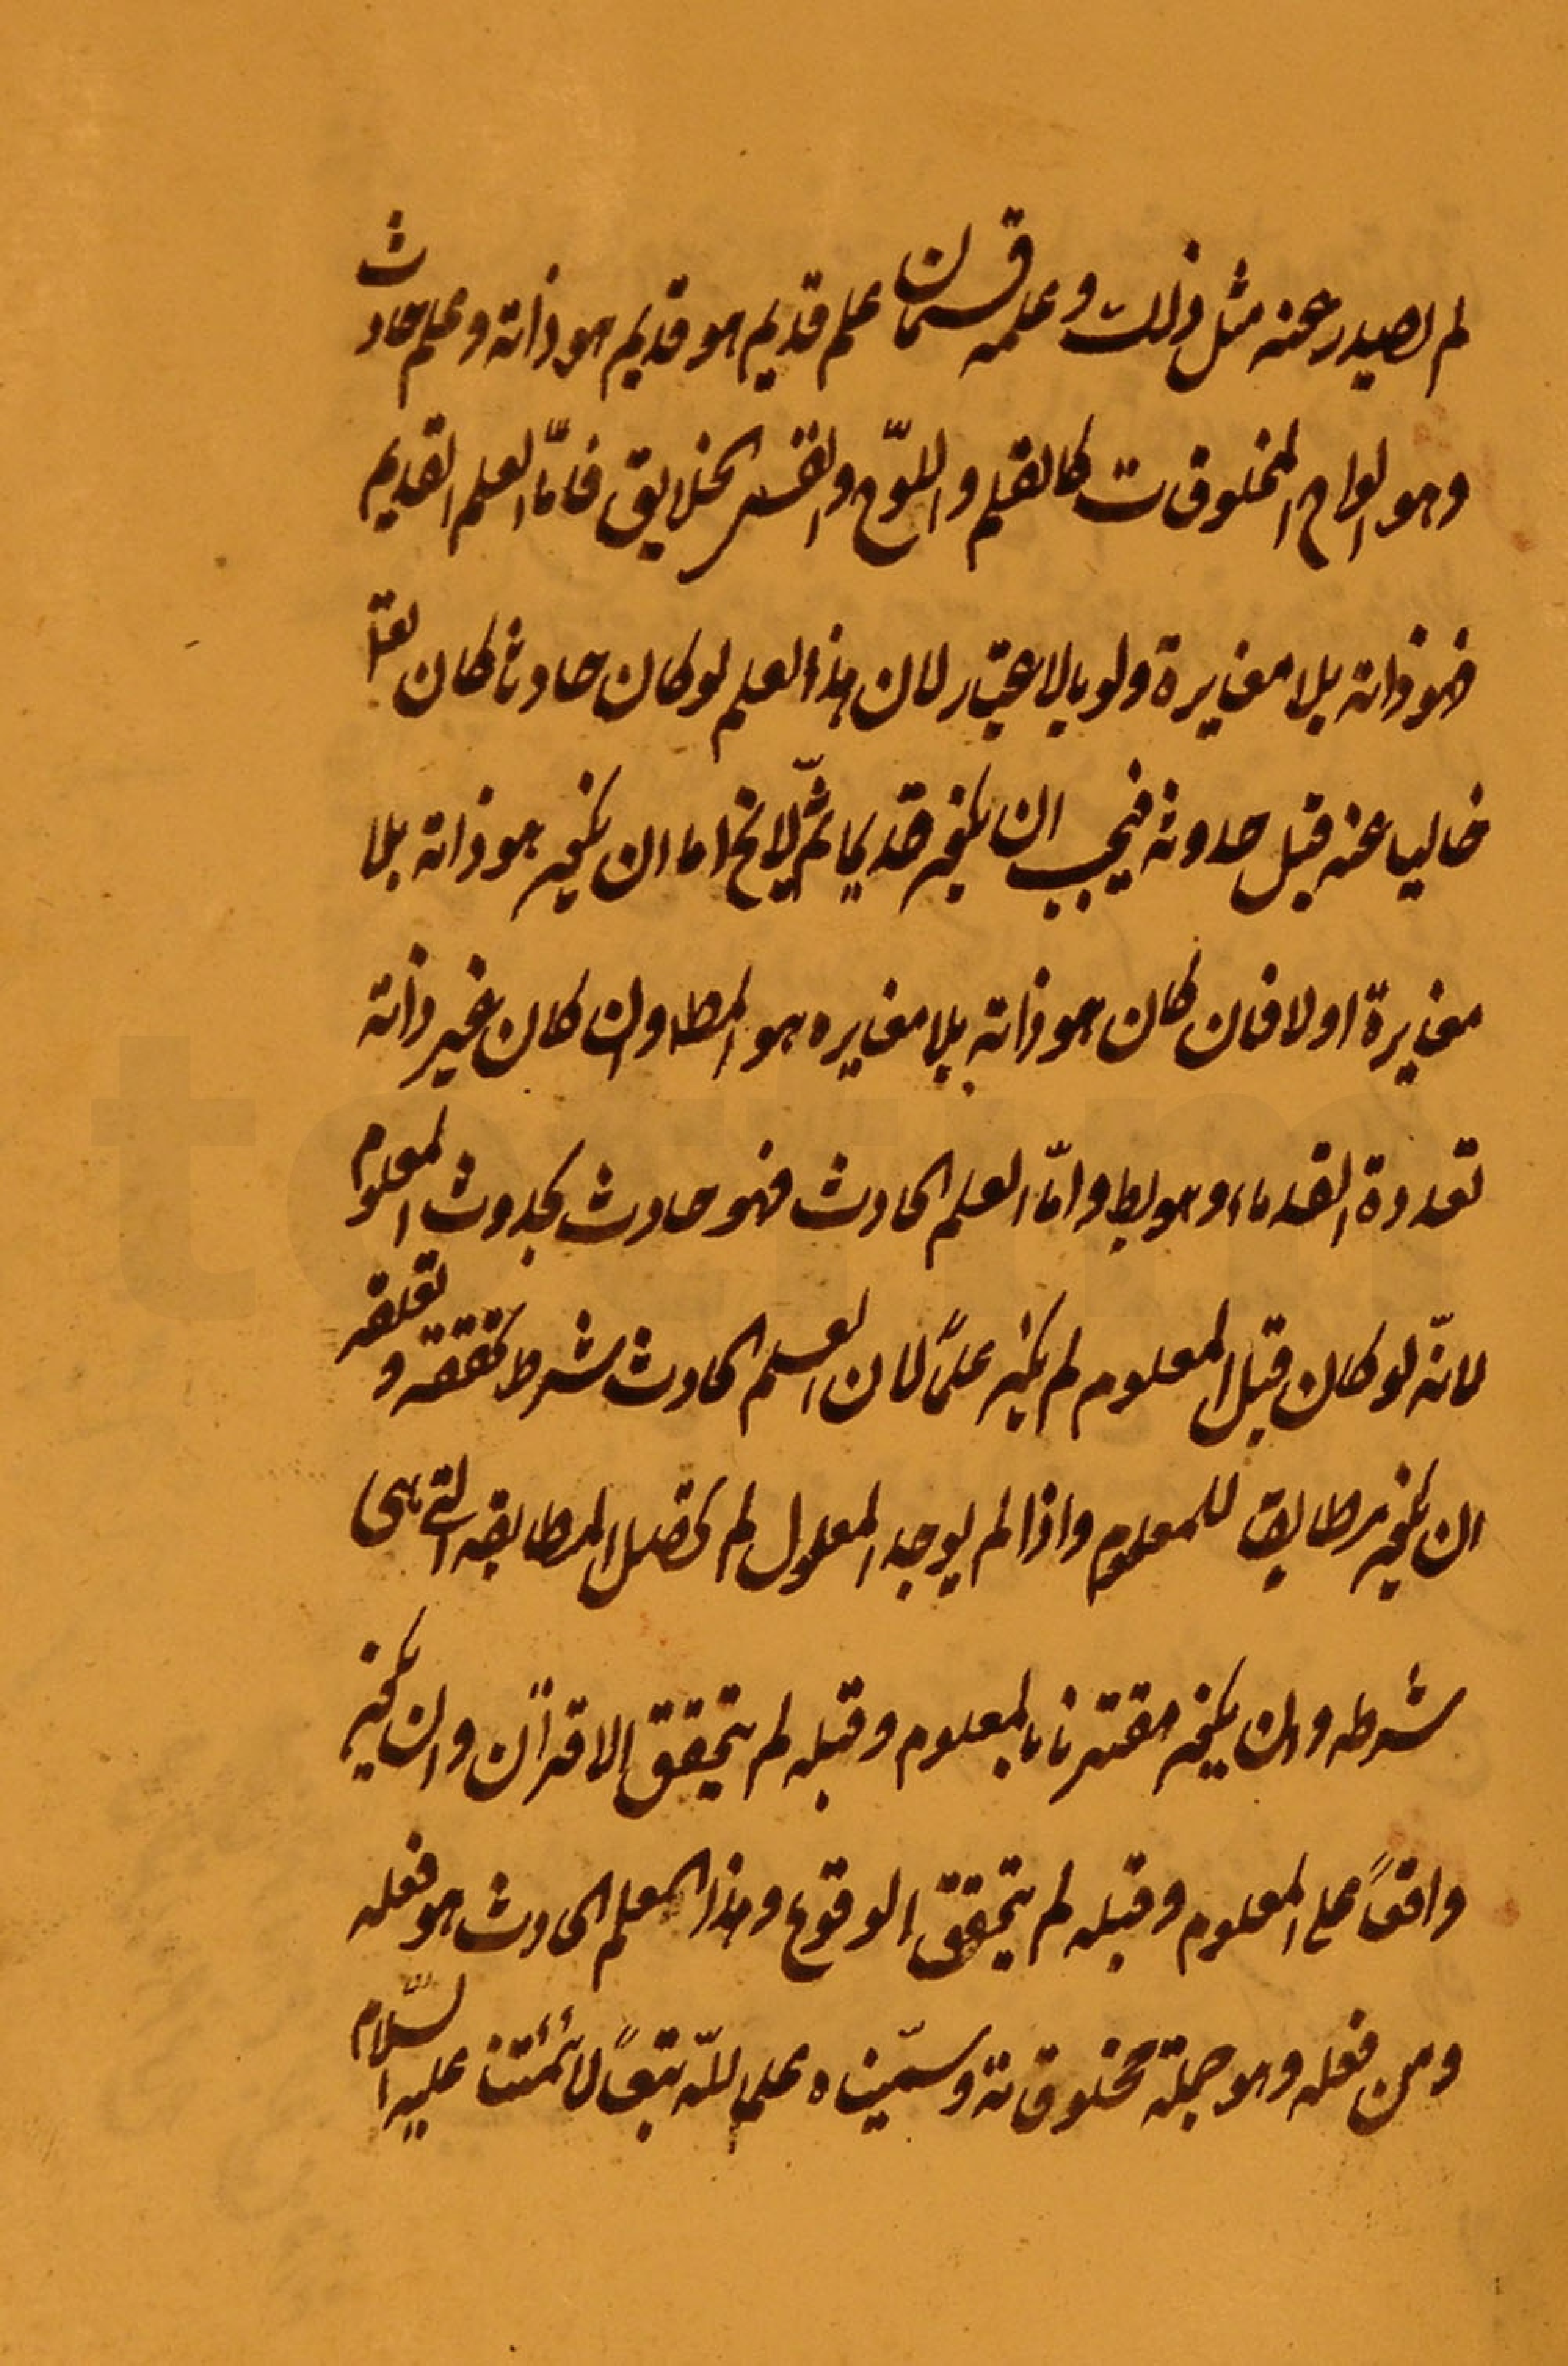 لم يصدر عنه مثل ذلك وعلمه قسمان علم قديم هو قديم هو ذاته وعلم حادث
وهو الواح المخلوقات كالقلم واللوّح وانفس الخلايق فامّا العلم القديم
فهو ذاته بلا مغايرة ولو بالاعتبار لان هذا العلم لو كان حادثا كان تعا
خاليا عنه قبل حدوثه فيجب ان يكون قديما ثمّ لا يخ اما ان يكون هو ذاته بلا
مغايرة اولا فان كان هو ذاته بلا مغايره هو المط وان كان غير ذاته
تعددة القدماء وهو بط وامّا العلم الحادث فهو حادث بحدوث المعلوم
لانّه لو كان قبل المعلوم لم يكن علمًا لان العلم الحادث شرط تحققه و تعلقه
ان يكون مطابق للمعلوم واذا لم يوجد المعلول لم تحصل المطابقه التي هى
شرطه وان يكون مقترنا بالمعلوم وقبله لم يتحقق الاقتران وان يكون
واقعًا على المعلوم وقبله لم يتحقق الوقوع وهذا العلم الحادث هو فعله
ومن فعله وهو جملة مخلوقاته وسمّيناه علم الله تبعًا لائمتنا عليهم السّلام
tocfim